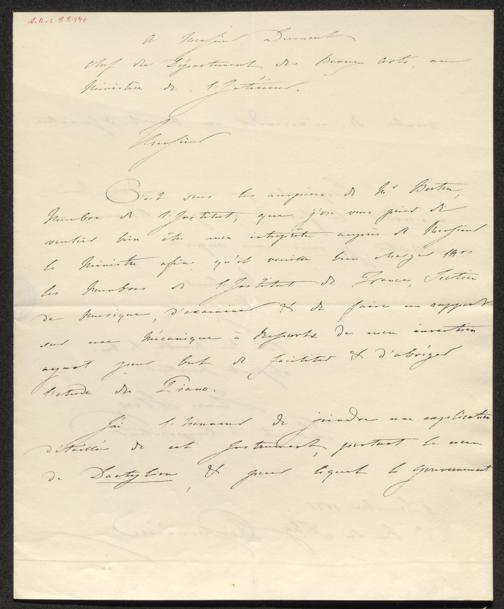 A Monsieur Dumont
Chef du Département des Beaux Arts, au
Ministère de l'Intérieur.
Monsieur
C'est sous les auspices de Mr Berton,
Membre de l'Institut, que j'ose vous prier de
vouloir bien être mon interprète auprès de Monsieur
le Ministre afin qu'il veuille bien charger
les Membres de l'Institut de France, Section
de Musique, d'examiner & de faire un rapport
sur une Mécanique à Ressorts de mon invention
ayant pour but de faciliter & d'abréger
l'étude du Piano.
J'ai l'honneur de joindre une explication
détaillée de cet Instrument, portant le nom
de Dactylion, & pour lequel le Gouvernement